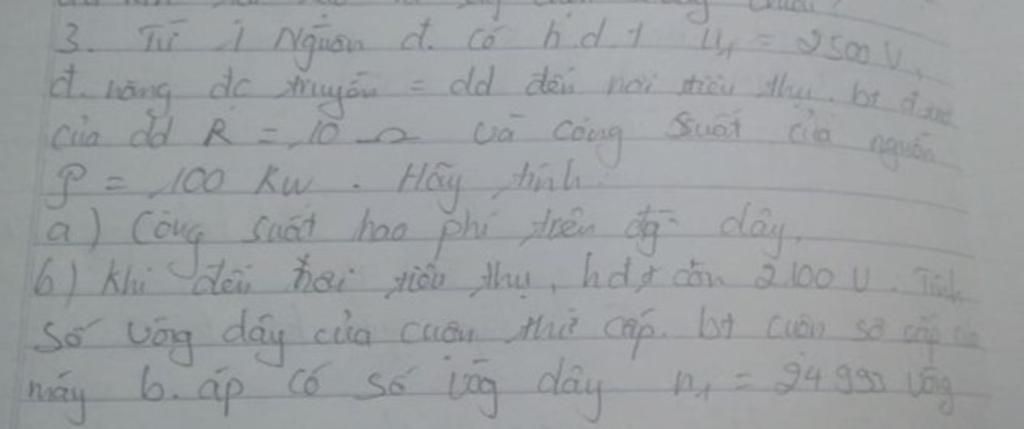 3. Từ 1 Nguồn đ. có h.d.t U1 = 2500 V,
đ. năng đc truyền = dd đến nơi tiêu thụ. bt
của dd R = 10 Ω và công suất của nguồn
P = 100 Kw. Hãy tính
a) Công suất hao phí trên đg dây.
b) Khi đến nơi tiêu thụ, hdt còn 2100 U. Tính
số vòng dây của cuộn thứ cấp. bt cuộn sơ cấp
máy b. áp có số vòg dây n1 = vòng